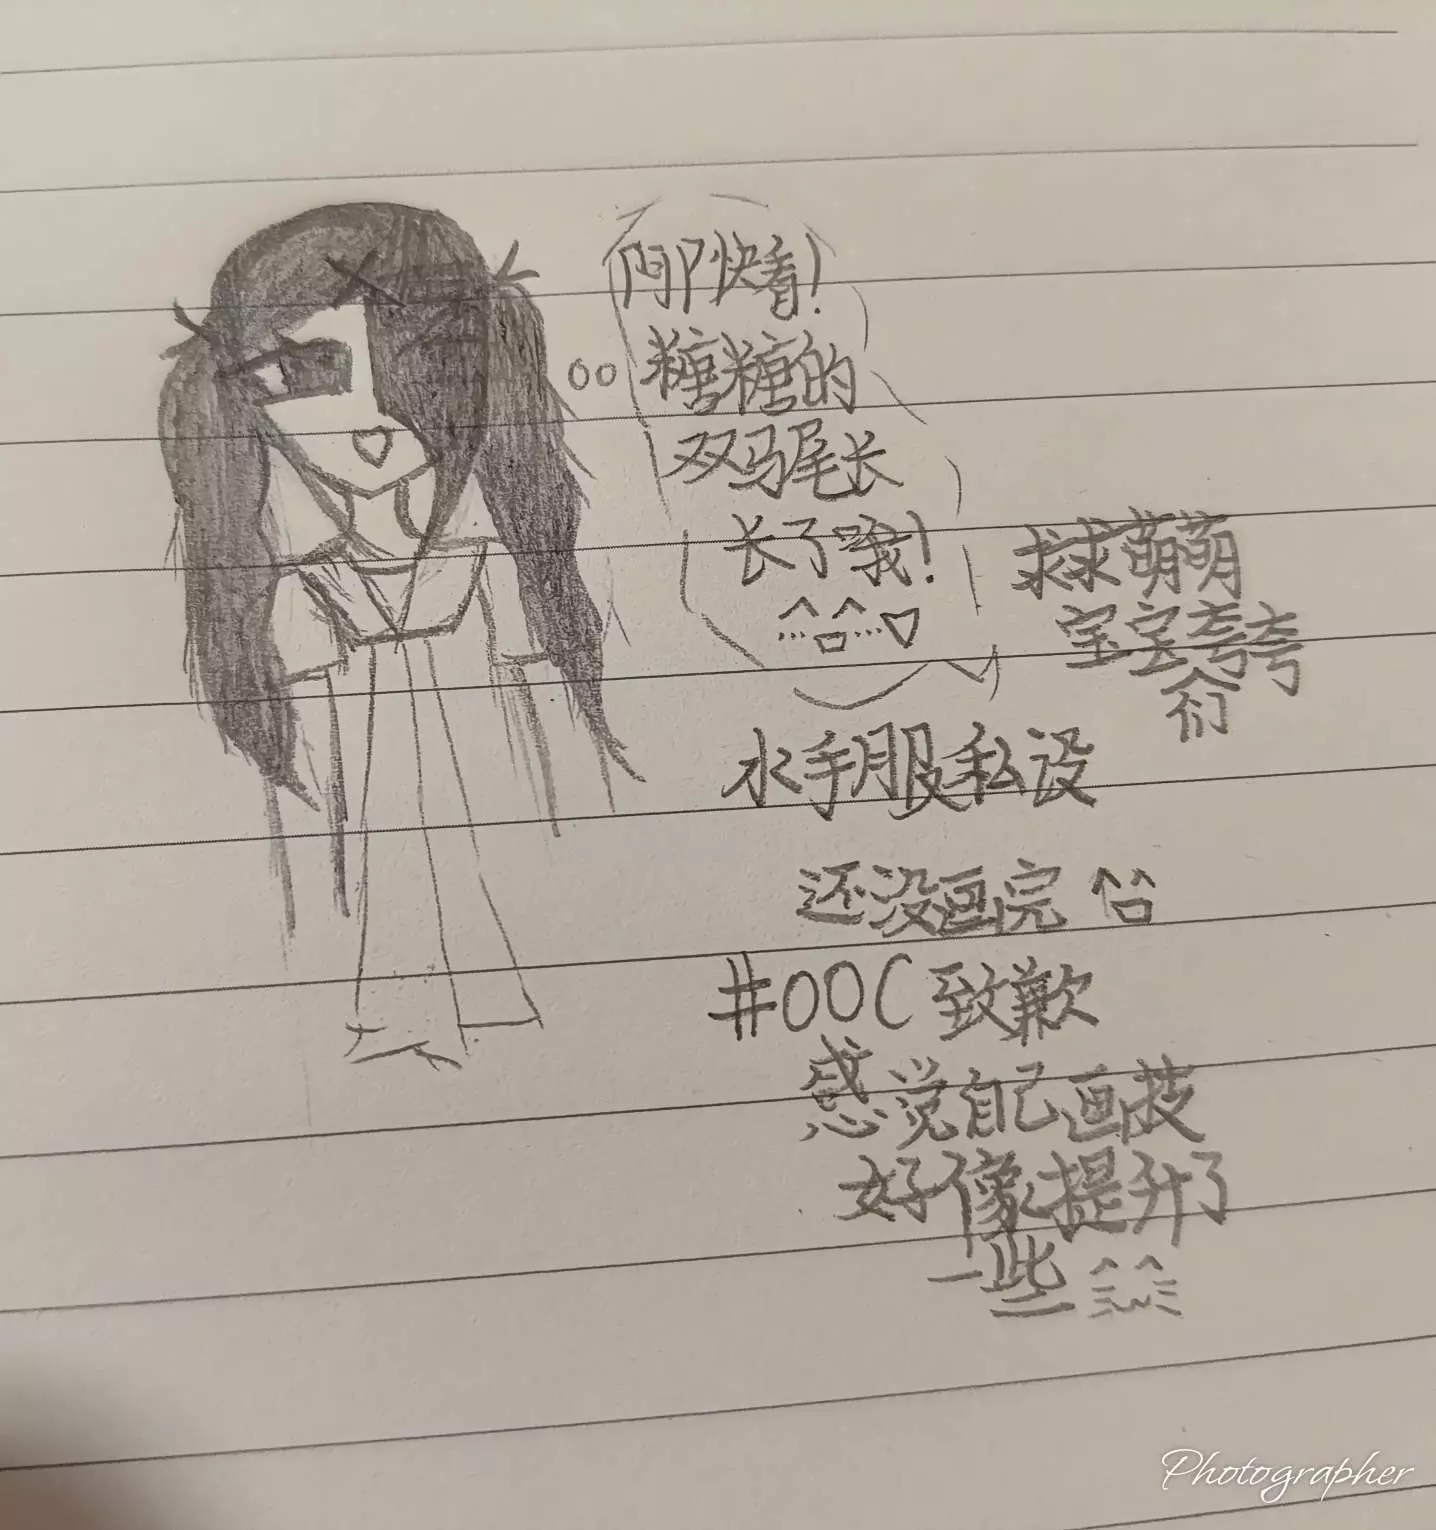 阿P快看!
糖糖的
双马尾长
长了哦!
求求萌萌
宝宝夸夸
们
水手服私设
还没画完
#OOC致歉
感觉自己画技
好像提升了
一些
Photographer